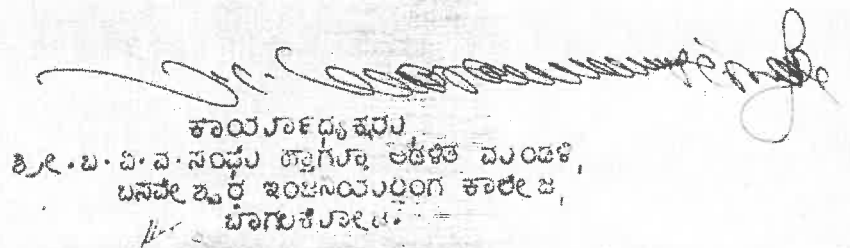 ಕಾರ್ಯಾಧ್ಯಕ್ಷರು,
ಶ್ರೀ.ಬ.ವಿ.ವ.ಸಂಘ ಹಾಗೂ ಆಡಳಿತ ಮಂಡಳಿ,
ಬಸವೇಶ್ವರ ಇಂಜನಿಯರಿಂಗ ಕಾಲೇಜ,
ಬಾಗಲಕೋಟ.